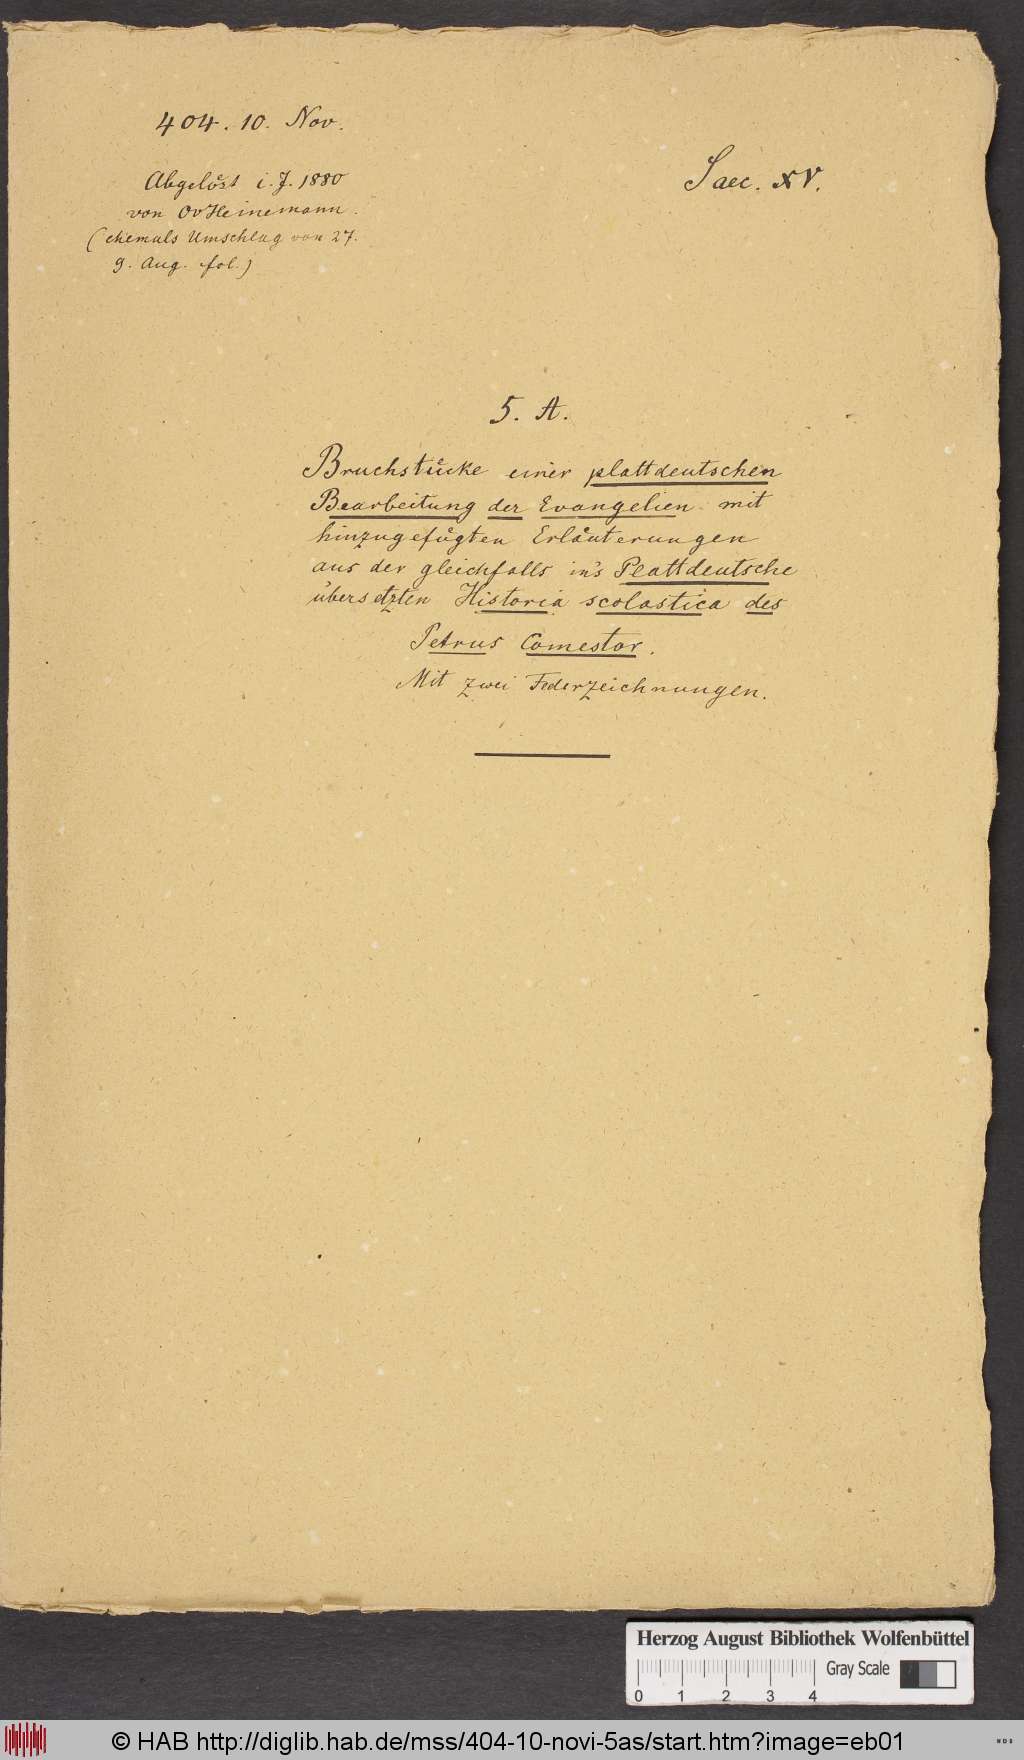 404. 10. Nov.
Saec. XV.
Abgelöst i. J. 1880
von OvHeinemann.
(ehemals Umschlag von 27.
9. Aug. fol.)
5. A.
Bruchstücke einer plattdeutschen
Bearbeitung der Evangelien mit
hinzugefügten Erläuterungen
aus der gleichfalls in's Plattdeutsche
übersetzten Historia scolastica des
Petrus Comestor.
Mit zwei Federzeichnungen.
Herzog August Bibliothek Wolfenbüttel
Gray Scale
0 1 2 3 4
© HAB http://diglib.hab.de/mss/404-10-novi-5as/start.htm?image=eb01